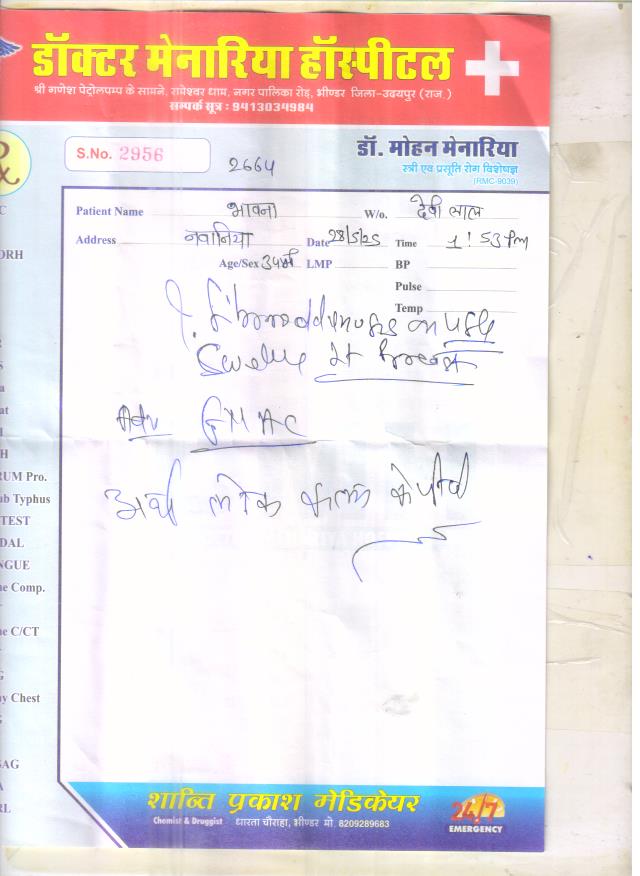 डॉक्टर मेनारिया हॉस्पीटल
श्री गणेश पेट्रोलपम्प के सामने, रामेश्वर धाम, नगर पालिका रोड़, भीण्डर जिला-उदयपुर (राज.)
सम्पर्क सूत्र : 9413034984
S.No. 2956
2664
डॉ. मोहन मेनारिया
स्त्री एवं प्रसूति रोग विशेषज्ञ
(RMC-9039)
Patient Name भावना W/o. देवी लाल
Address नवानिया Date 28/5/25 Time 1:53 Pm
Age/Sex 34 LMP BP
Pulse
Temp
ORH
at
H
RUM Pro.
ub Typhus
TEST
DAL
NGUE
ne Comp.
ne C/CT
ay Chest
SAG
RL
breast
Adv
लोक कला के पीछे
शान्ति प्रकाश मेडिकेयर
Chemist & Druggist धारता चौराहा, भीण्डर मो. 8209289683
24/7
EMERGENCY